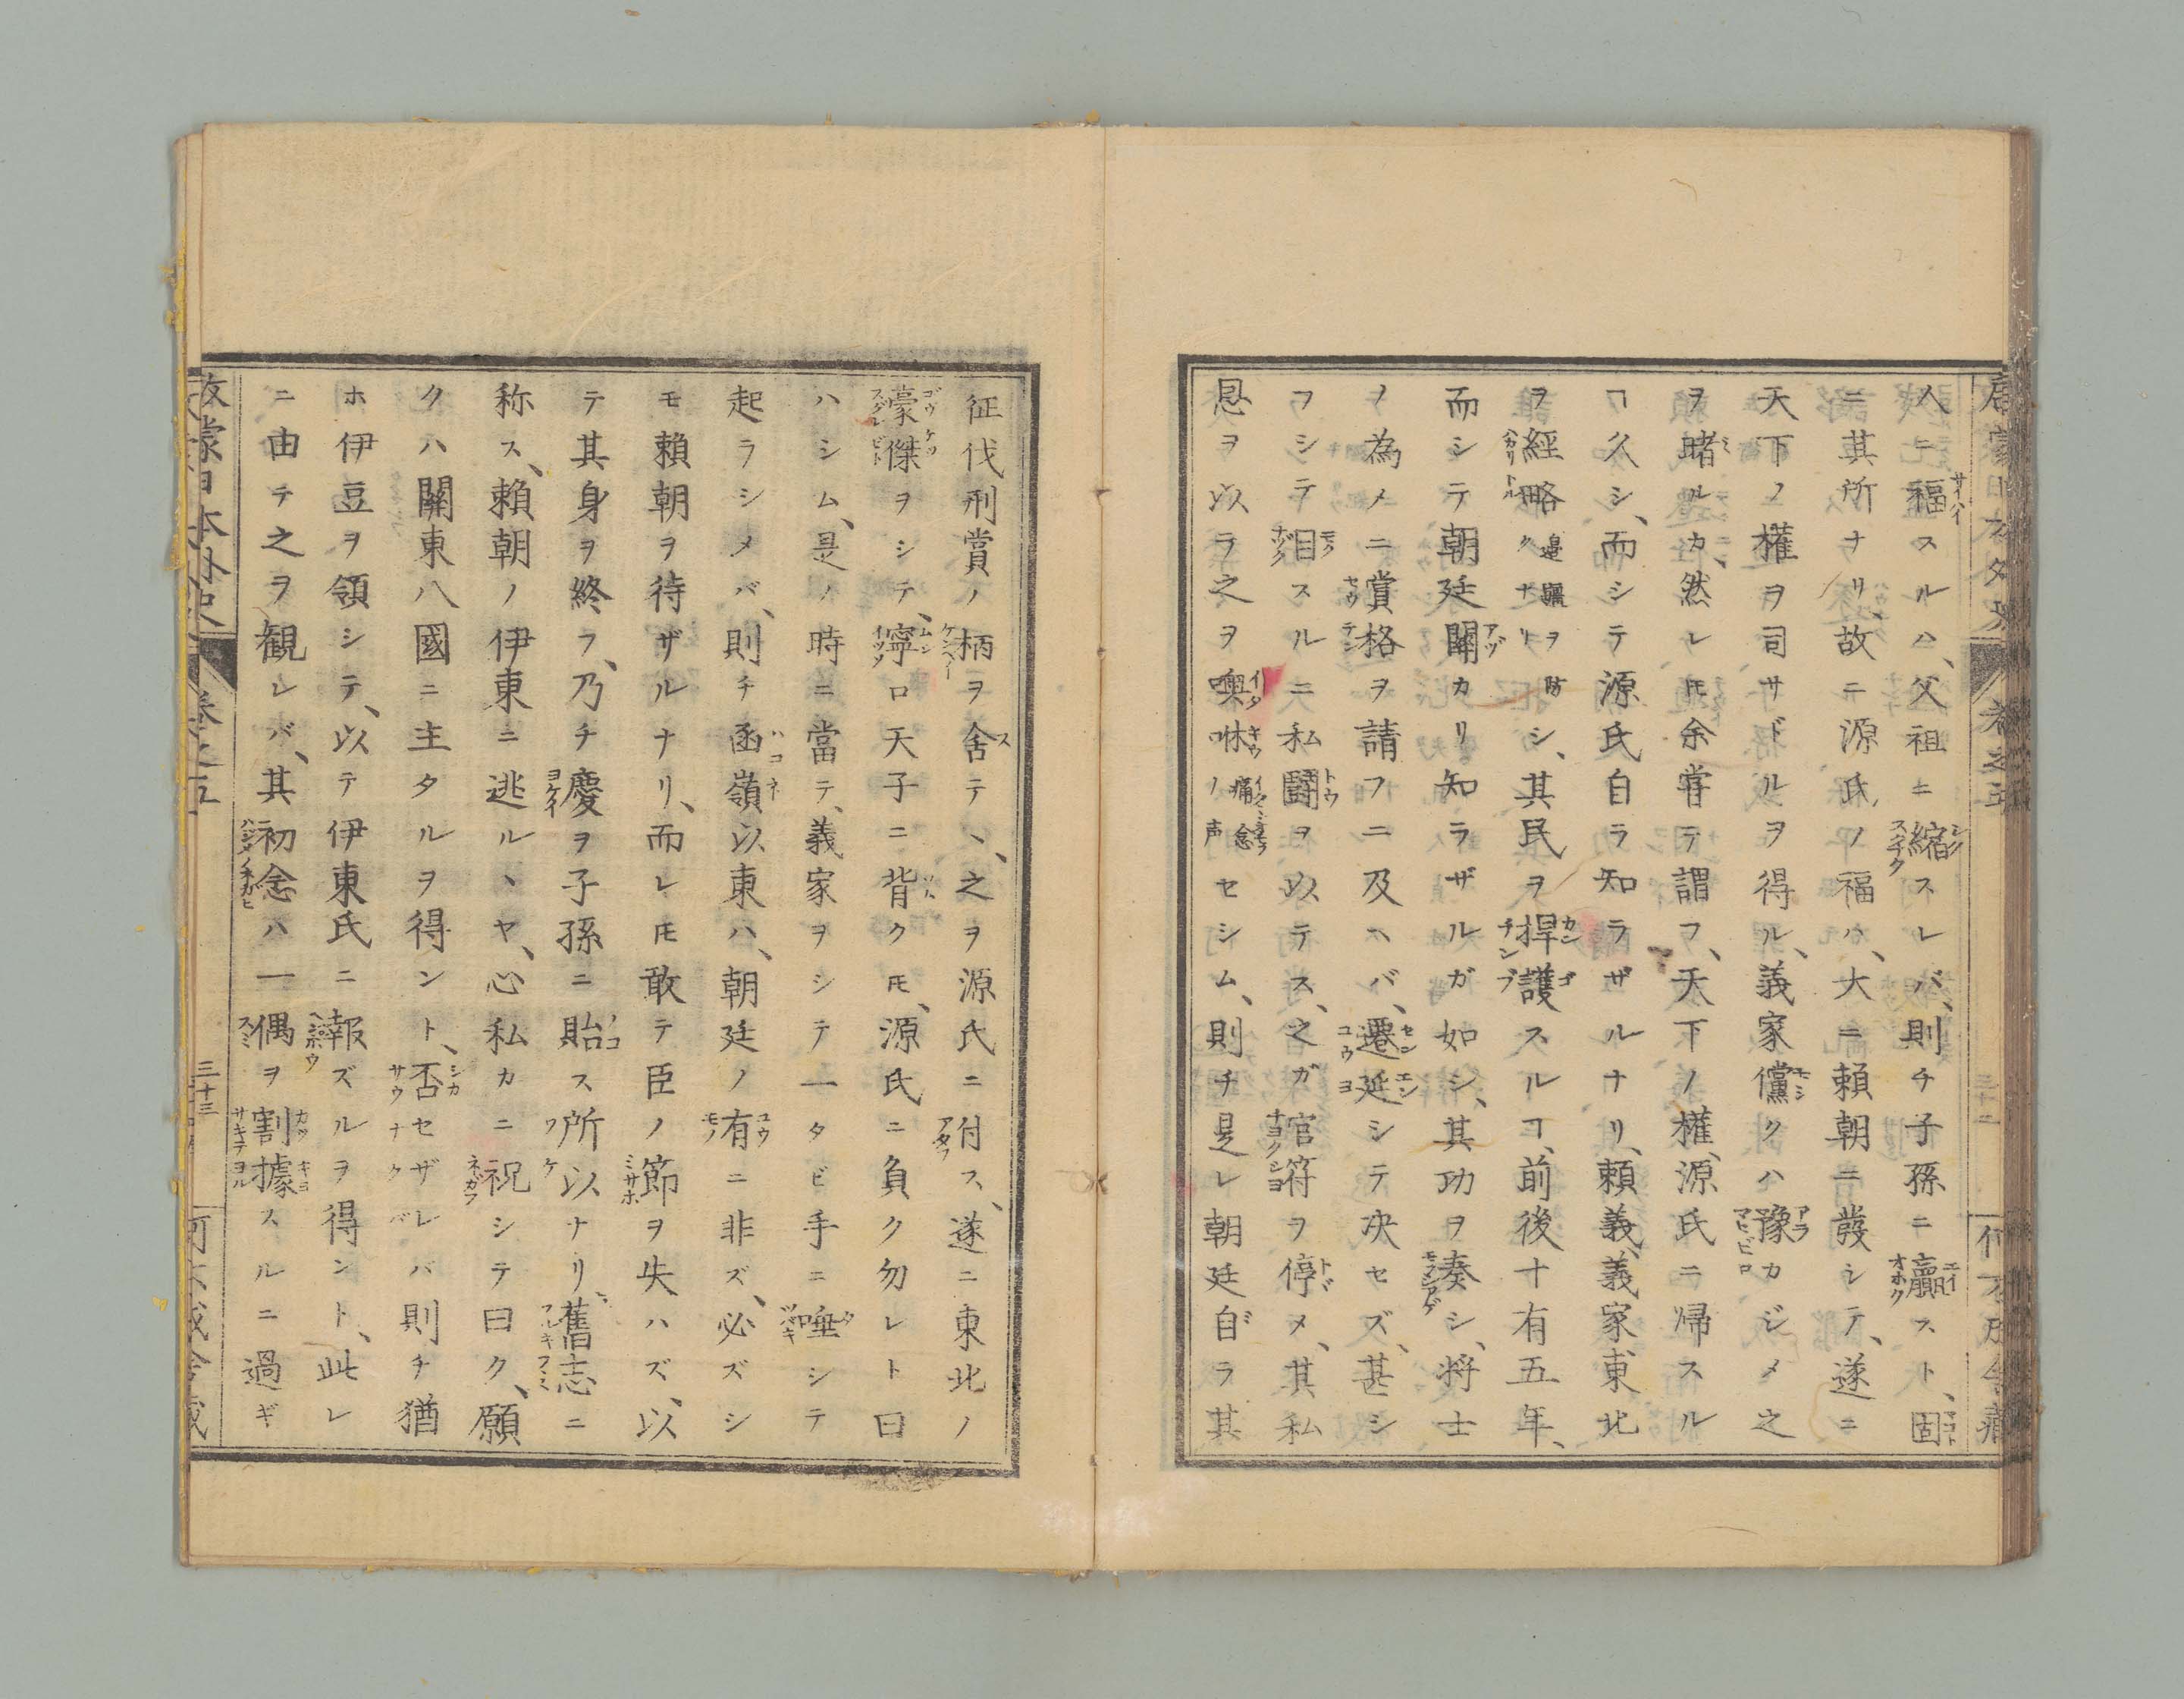 人ニ福スルハ、父祖ニ縮スレバ、則チ子孫ニ贏スト、固
ニ其所ナリ、故ニ源氏ノ福ハ、大ニ頼朝ニ發シテ、遂ニ
天下ノ權ヲ司サドルヲ得ル、義家儻クハ豫カジメ之
ヲ睹ルカ、然レ𪜈余甞テ謂フ、天下ノ權、源氏ニ帰スル
ヿ久シ、而シテ源氏自ラ知ラザルナリ、頼義、義家東北
ヲ經略邉疆ヲ防クナリシ、其民ヲ捍護スルヿ、前後十有五年、
而シテ朝廷關カリ知ラザルガ如シ、其功ヲ奏シ、将士
ノ為メニ賞格ヲ請フニ及ヘバ、遷延シテ决セズ、甚シ
フシテ目スルニ私鬪ヲ以テス、之ガ官符ヲ停メ、其私
恩ヲ以ラ之ヲ噢咻痛念ノ声セシム、則チ是レ朝廷自ラ其
征伐刑賞ノ柄ヲ舍テヽ、之ヲ源氏ニ付ス、遂ニ東北ノ
豪傑ヲシテ、寧ロ天子ニ背ク𪜈、源氏ニ負ク勿レト曰
ハシム、是ノ時ニ當テ、義家ヲシテ一タビ手ニ唾シテ
起ラシメバ、則チ函嶺以東ハ、朝廷ノ有ニ非ズ、必ズシ
モ頼朝ヲ待ザルナリ、而レ𪜈敢テ臣ノ節ヲ失ハズ、以
テ其身ヲ終フ、乃チ慶ヲ子孫ニ貽ス所以ナリ、舊志ニ
称ス、頼朝ノ伊東ニ逃ルヽヤ、心私カニ祝シテ曰ク、願
クハ關東八國ニ主タルヲ得ント、否セザレバ則チ猶
ホ伊豆ヲ領シテ、以テ伊東氏ニ報ズルヲ得ント、此レ
ニ由テ之ヲ観レバ、其初念ハ一偶ヲ割據スルニ過ギ
卷之五
三十三